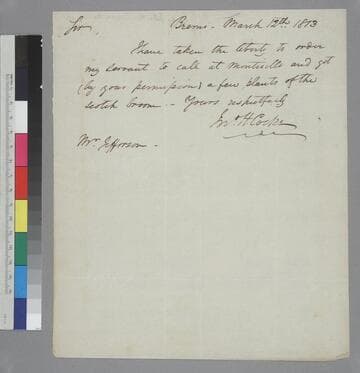 Sir, Bremo - March 12th. 1813
I have taken the liberty to order
my servant to call at Monticello and get
(by your permission) a few plants of the
scotch broom. - Yours respectfully
Jno. H Cocke
Mr. Jefferson -